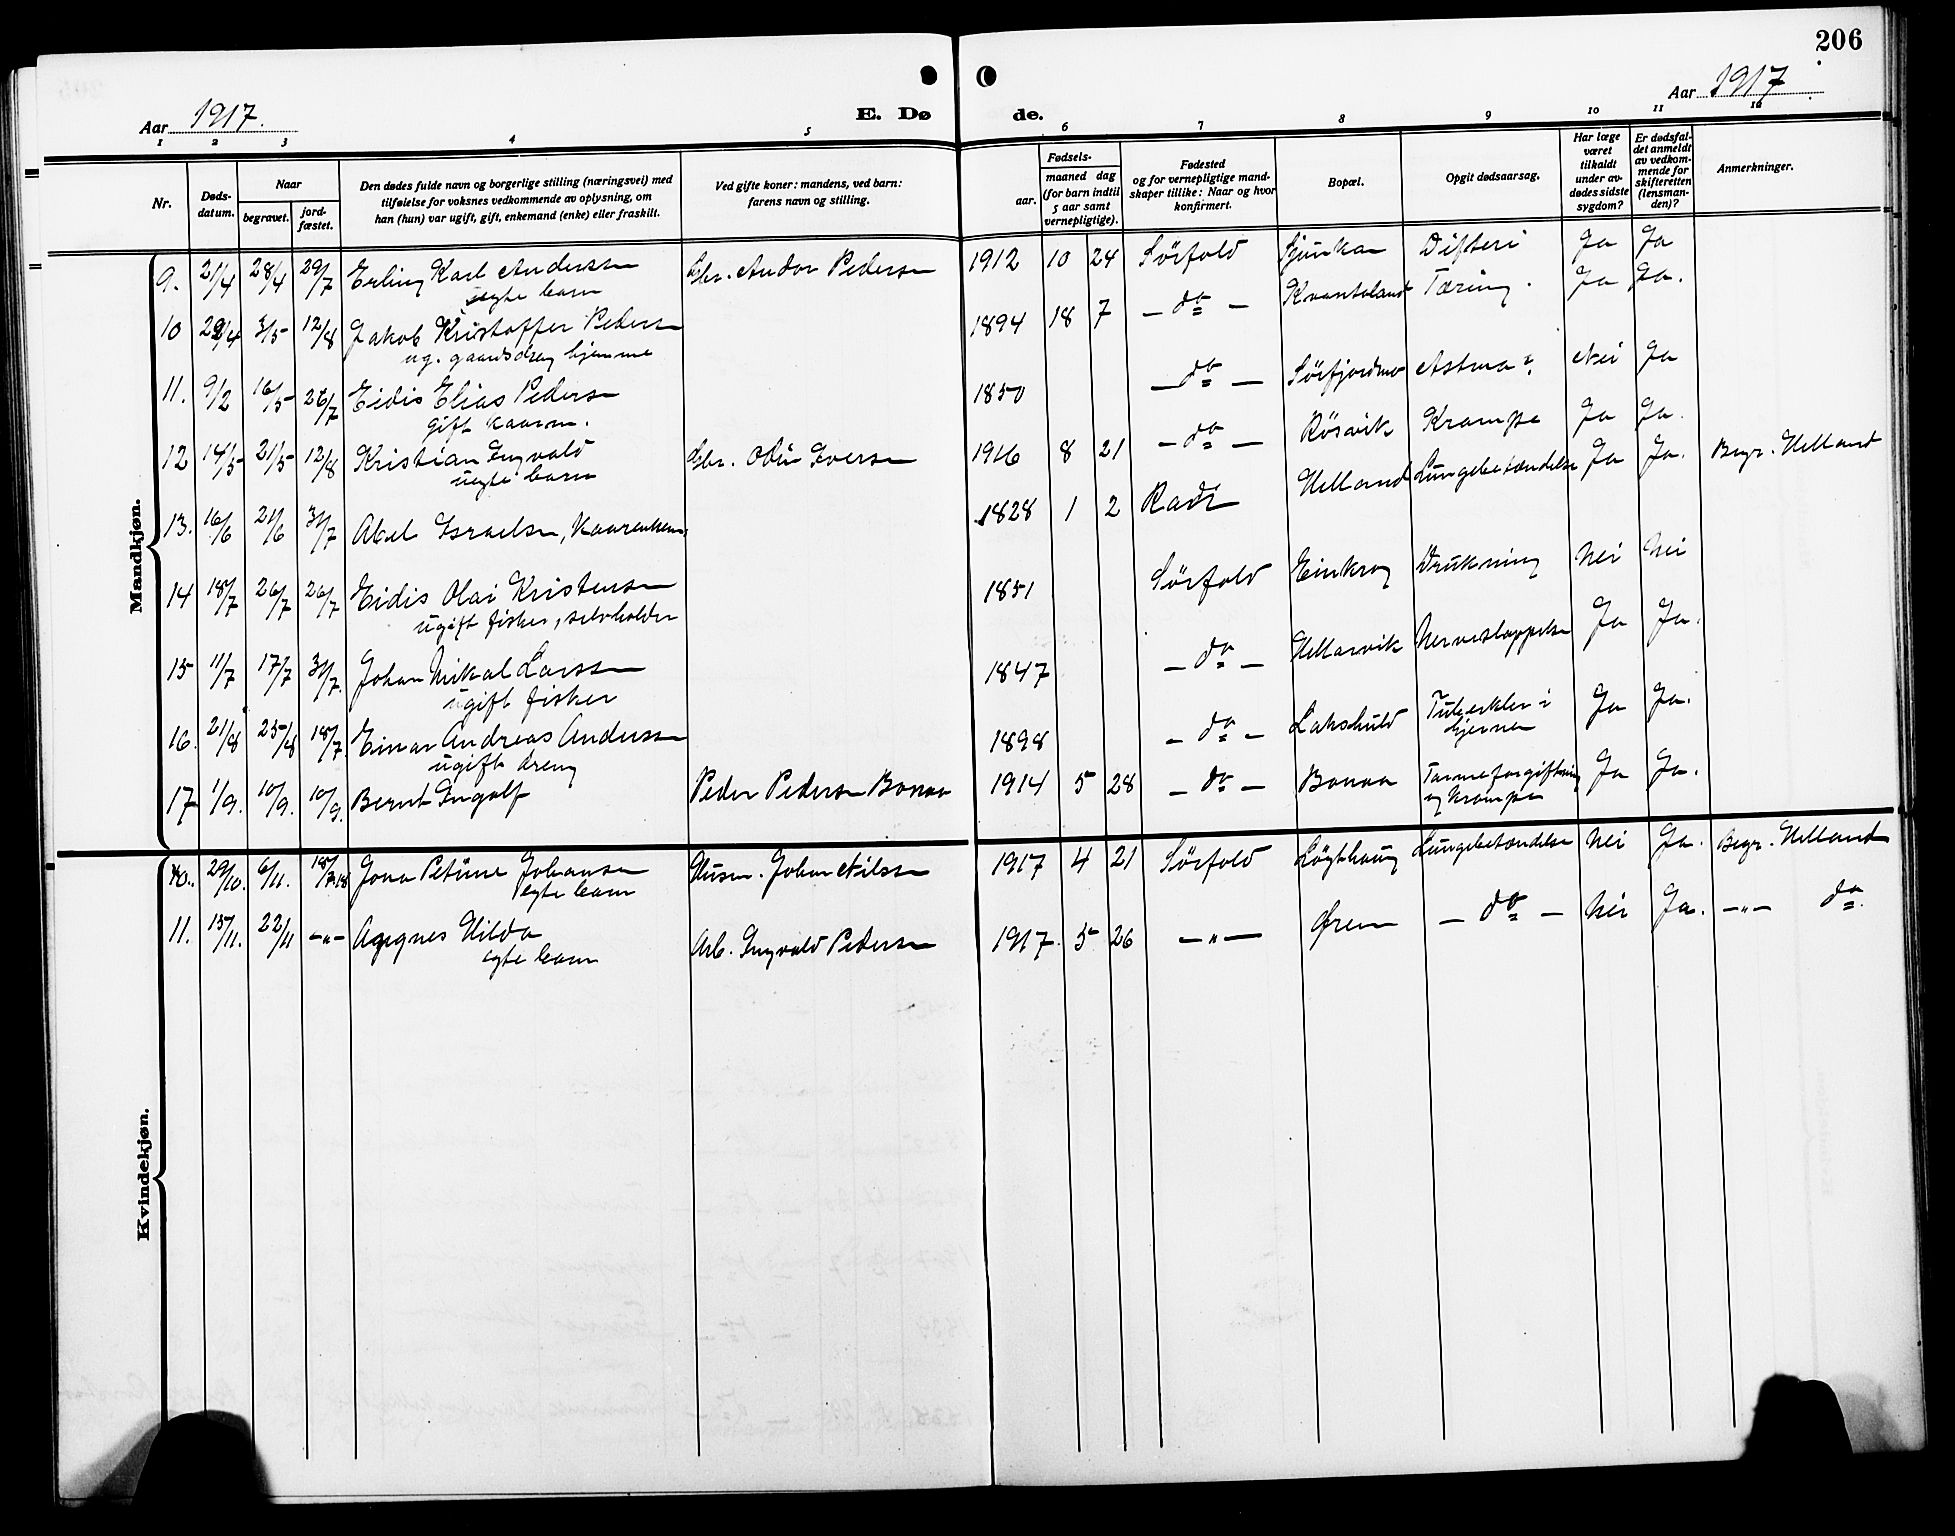 206
Aar 1917.
E. Dø
de.
Aar 1917.
1 2 3 4 5 6 7 8 9 10 11 12
Nr.
Døds-
datum.
Naar
begravet.
jord-
fæstet.
Den dødes fulde navn og borgerlige stilling (næringsvei) med
tilføielse for voksnes vedkommende av oplysning, om
han (hun) var ugift, gift, enkemand (enke) eller fraskilt.
Ved gifte koner: mandens, ved barn:
farens navn og stilling.
Fødsels-
aar.
maaned dag
(for barn indtil
5 aar samt
vernepligtige).
Fødested
og for vernepligtige mand-
skaper tillike: Naar og hvor
konfirmert.
Bopæl.
Opgit dødsaarsag.
Har læge
været
tilkaldt
under av-
dødes sidste
sygdom?
Er dødsfal-
det anmeldt
av vedkom-
mende for
skifteretten
(lensman-
den)?
Anmerkninger.
Mandkjøn.
9. 21/4 28/4 29/7 Erling Karl Andersen Gbr. Andor Pedersen 1912 10 24 Sörfold Sjunkan Difteri Ja Ja
uegte barn
10 3/5 12/8 Jakob Kristoffer Peders 1894 18 7 - do - Kvantoland Tæring. Ja Ja.
ug. gaardsdreng hjemme
11. 9/2 16/5 26/7 Eidis Elias Peders 1850 - do - Sörfjordmo Astma?. Nei Ja
gift kaarm.
12 14/5 21/5 12/8 Kristian Ingvald Gbr. Odin Iversen 1916 8 21 - do - Rösvik Krampe Ja Ja.
uegte barn
13. 16/6 21/6 31/7 Abel Israelsen, Kaarenkem. 1828 1 2 Rödö Helland Lungebetændelse Ja Ja. Begr. Helland
14 18/7 26/7 26/7 Eidis Olai Kristensen 1851 Sörfold Einkrog Drukning Nei Nei
ugift fisker, selvholder
15 11/7 17/7 31/7. Johan Mikal Larssen 1847 - do - Hellarvik Nerveslappelse Ja Ja.
ugift fisker
16. 21/8 25/8 18/7. Einar Andreas Andersen 1898 - do - Lakshuld Tuberkler i hjernen Ja Ja.
ugift dreng
17 1/9. 10/9. 10/9. Bernt Ingolf Peder Pedersen Bonaa 1914 5 28 - do - Bonaa Tarmeforgiftning og krampe Ja Ja.
Kvindekjøn.
10. 29/10. 6/11. 18/7.18 Jona Petrine Johansen Husm. Johan Nilsen 1917 4 21 Sörfold Lögthaug Lungebetændelse Nei Ja. Begr. Helland
egte barn
11. 15/11. 22/11 -"- Agnes Hilda Arb. Ingvald Pedersen 1917. 5 26 -"- Ören - do - Nei Ja. -"- do.
egte barn